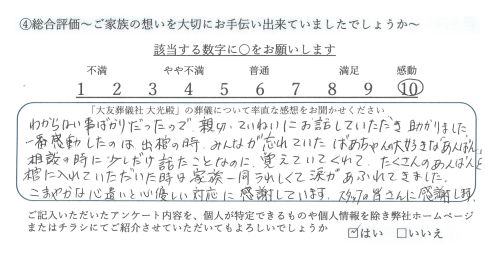 ④総合評価～ご家族の想いを大切にお手伝い出来ていましたでしょうか～
該当する数字に○をお願いします
不満 やや不満 普通 満足 感動
1 2 3 4 5 6 7 8 9 10
「大友葬儀社 大光殿」の葬儀について率直な感想をお聞かせください
わからない事ばかりだったので、親切、ていねいにお話していただき助かりました。
一番感動したのは出棺の時、みんなが忘れていたばあちゃんの大好きなあんぱん。
相談の時に少しだけ話たことなのに、覚えていてくれて、たくさんのあんぱんを
棺に入れていただいた時は家族一同うれしくて涙があふれてきました。
こまやかな心遣いと心優しい対応に感謝しています。スタッフの皆さんに感謝します。
ご記入いただいたアンケート内容を、個人が特定できるものや個人情報を除き弊社ホームページ
またはチラシにてご紹介させていただいてもよろしいでしょうか ☑はい □いいえ